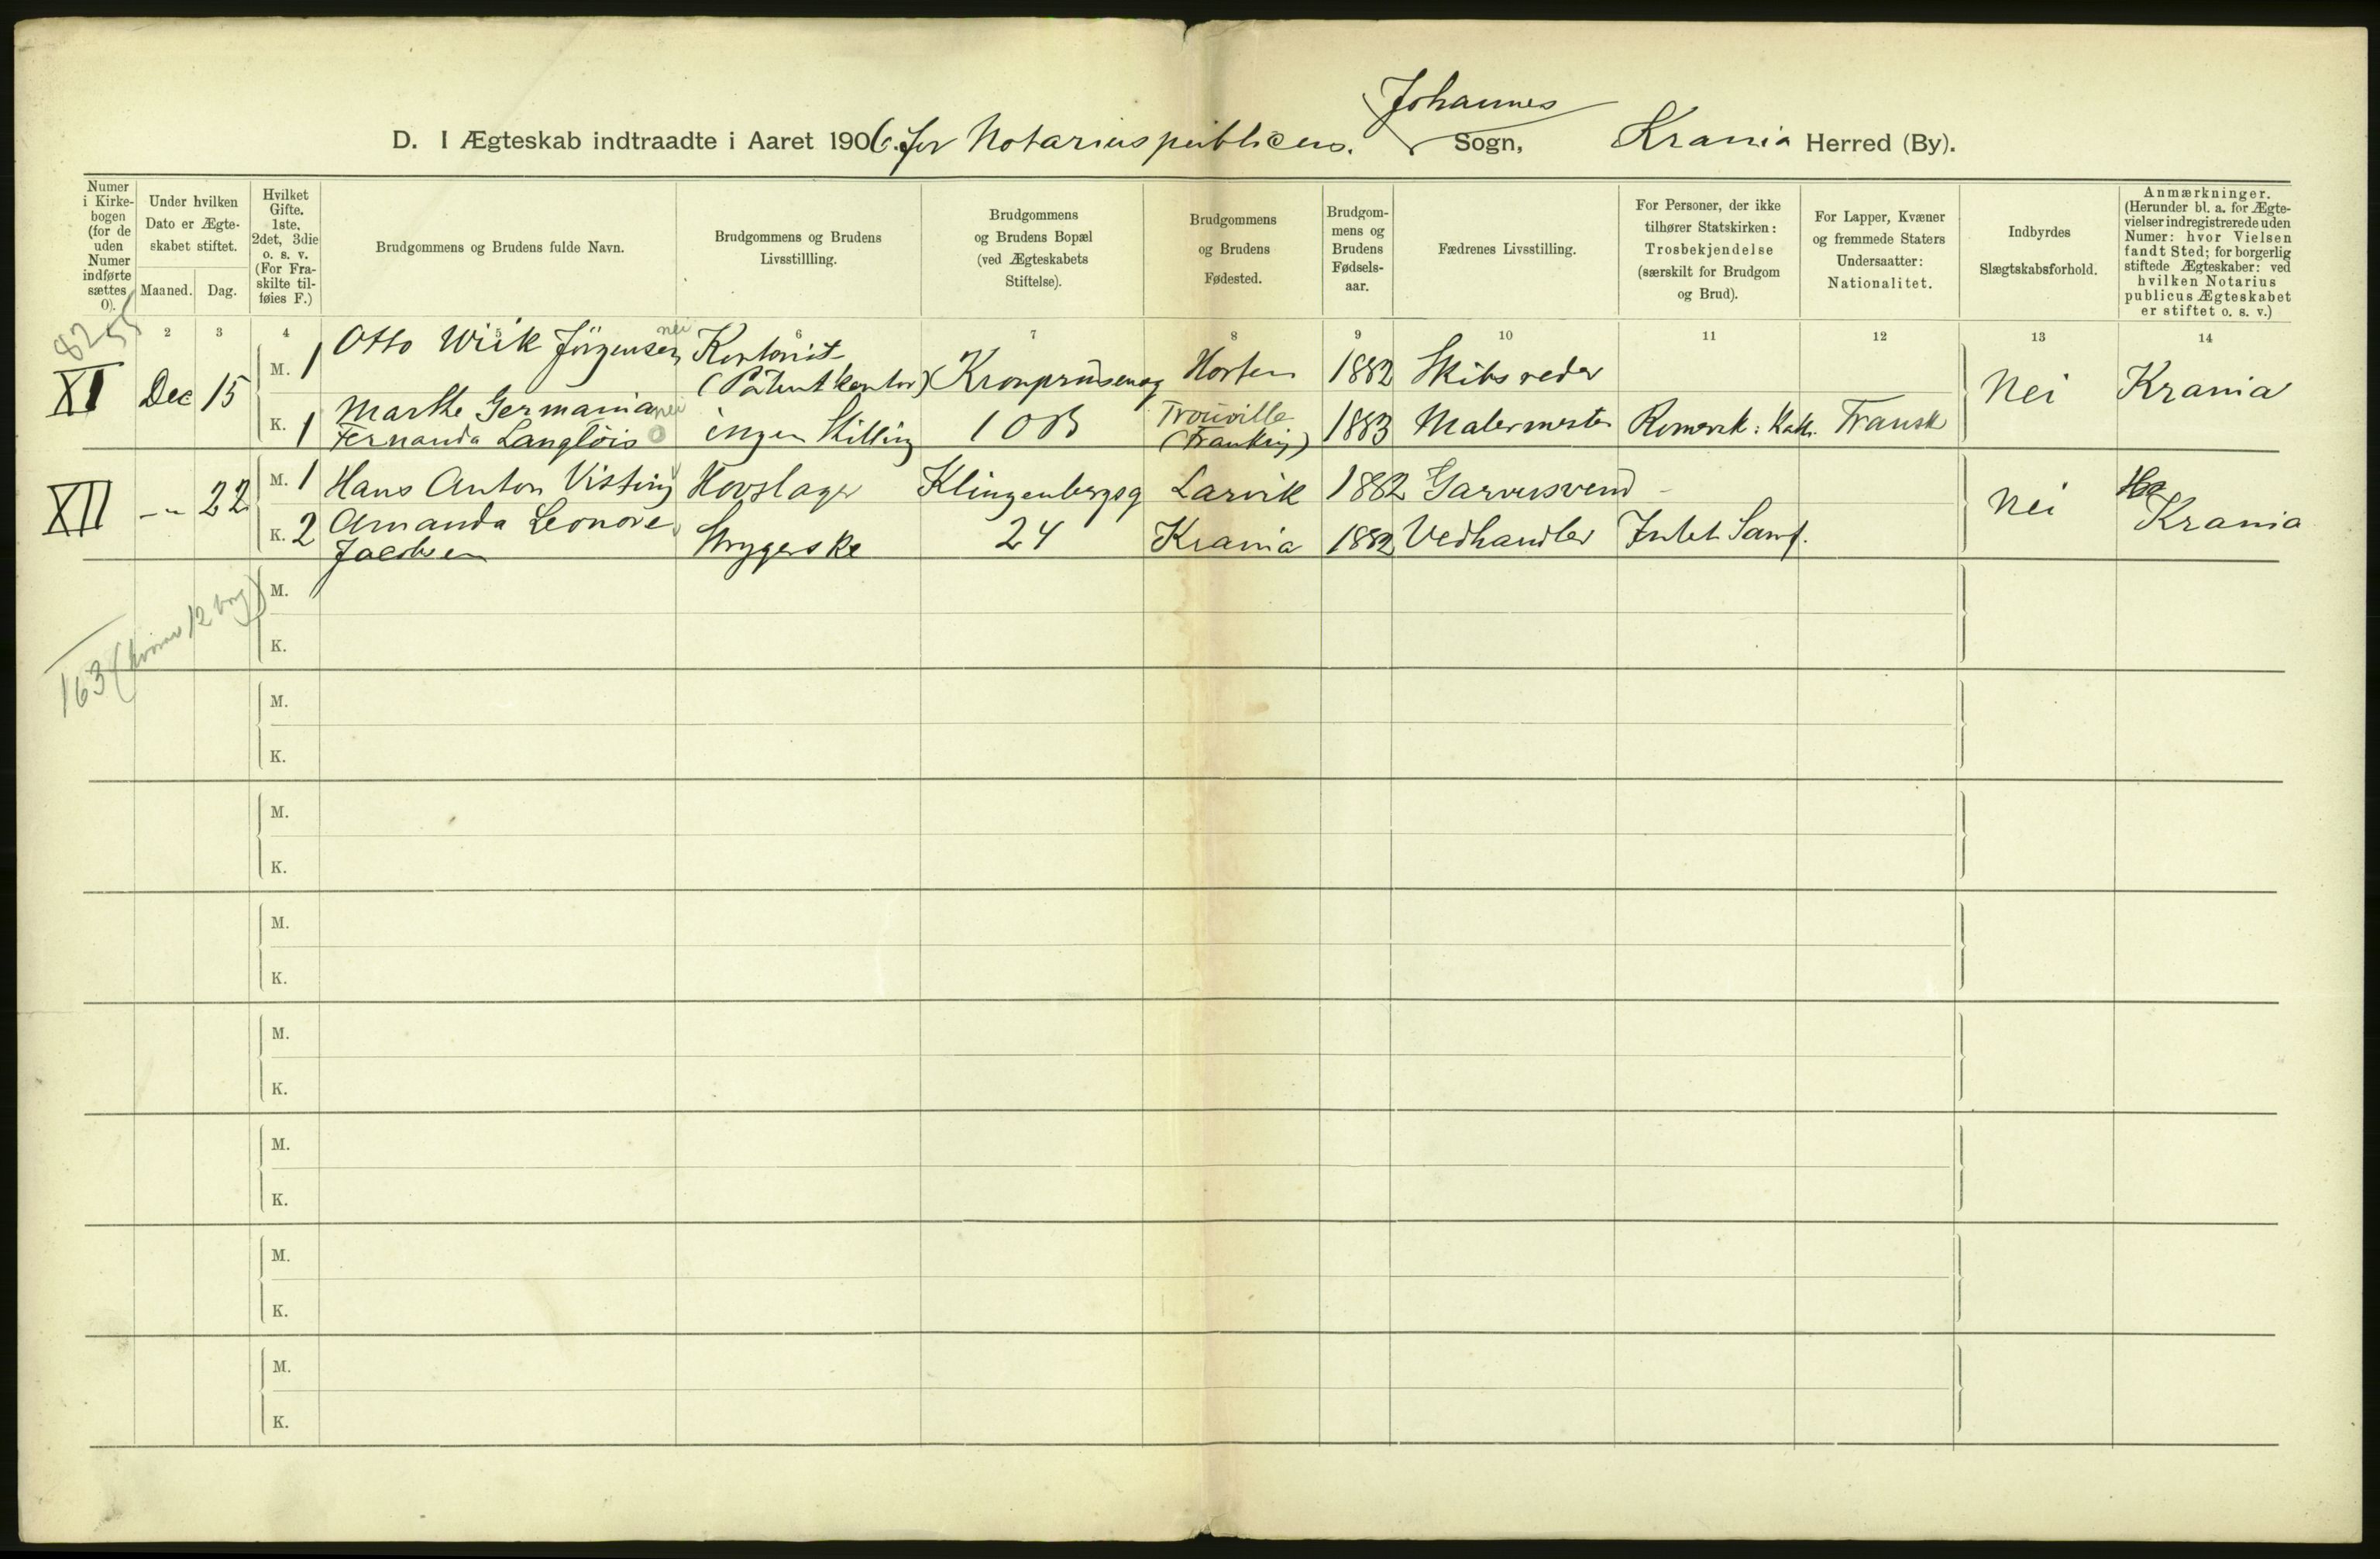 Johannes
D. I Ægteskab indtraadte i Aaret 1906. for Notarius publicus. Sogn, Krania Herred (By).
Numer i Kirke-bogen (for de uden Numer indførte sættes 0).
Under hvilken Dato er Ægte-skabet stiftet.
Maaned. Dag.
Hvilket Gifte. 1ste. 2det, 3die o. s. v. (For Fra-skilte til-føies F.)
Brudgommens og Brudens fulde Navn.
Brudgommens og Brudens Livsstillling.
Brudgommens og Brudens Bopæl (ved Ægteskabets Stiftelse).
Brudgommens og Brudens Fødested.
Brudgom-mens og Brudens Fødsels-aar.
Fædrenes Livsstilling.
For Personer, der ikke tilhører Statskirken: Trosbekjendelse (særskilt for Brudgom og Brud).
For Lapper, Kvæner og fremmede Staters Undersaatter: Nationalitet.
Indbyrdes Slægtskabsforhold.
Anmærkninger. (Herunder bl. a. for Ægte-vielser indregistrerede uden Numer: hvor Vielsen fandt Sted; for borgerlig stiftede Ægteskaber: ved hvilken Notarius publicus Ægteskabet er stiftet o. s. v.)
82 55
2 3 4 5 6 7 8 9 10 11 12 13 14
XI Dec 15 M. 1 Otto Wiik Jörgensen nei Kontorist (Patentkontor) Kronprinseng Horten 1882 Skibsreder Nei Krania
K. 1 Marthe Germania nei
Fernanda Langlois ingen Stilling 10B Trouville (Frankrig) 1883 Malermester Romersk: Kath. Fransk
XII -"- 22 M. 1 Hans Anton Visting Hovslager Klingenbergsg Larvik 1882 Garversvend - Nei Krania
K. 2 Amanda Leonore
Jacobsen Strygerske 24 Krania 1882 Vedhandler Intet Samf.
M.
K.
163 (hvorav 12 borg)
M.
K.
M.
K.
M.
K.
M.
K.
M.
K.
M.
K.
M.
K.